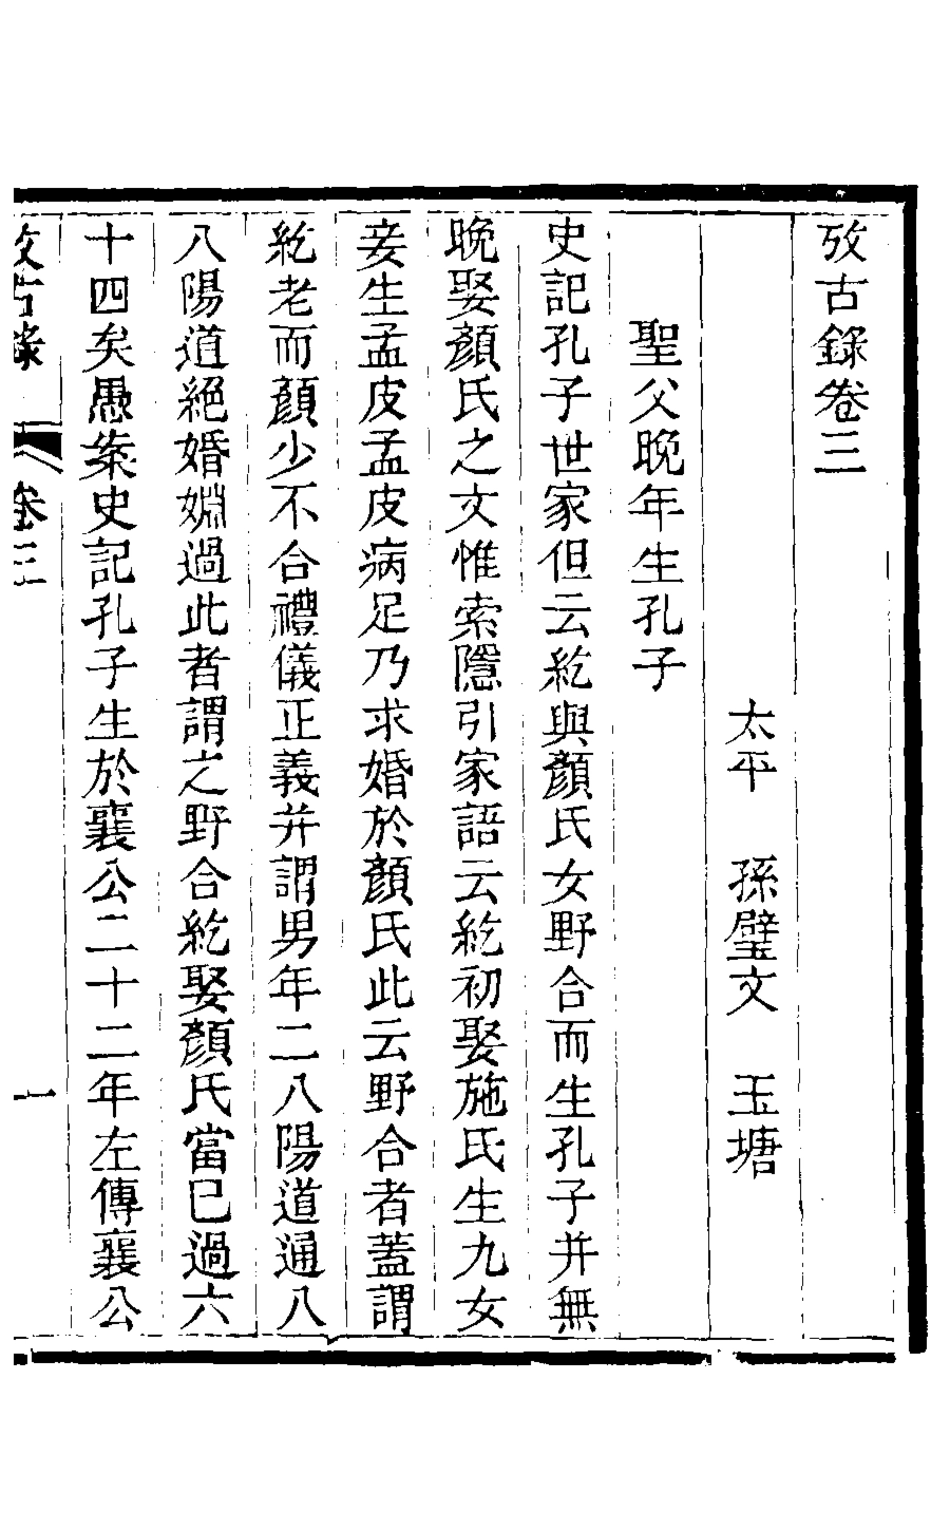 攷古錄卷三
太平　孫璧文　玉塘
聖父晚年生孔子
史記孔子世家但云紇與顏氏女野合而生孔子并無
晚娶顏氏之文惟索隱引家語云紇初娶施氏生九女
妾生孟皮孟皮病足乃求婚於顏氏此云野合者蓋謂
紇老而顏少不合禮儀正義并謂男年二八陽道通八
八陽道絕婚姻過此者謂之野合紇娶顏氏當已過六
十四矣愚案史記孔子生於襄公二十二年左傳襄公
攷古錄　卷三　一